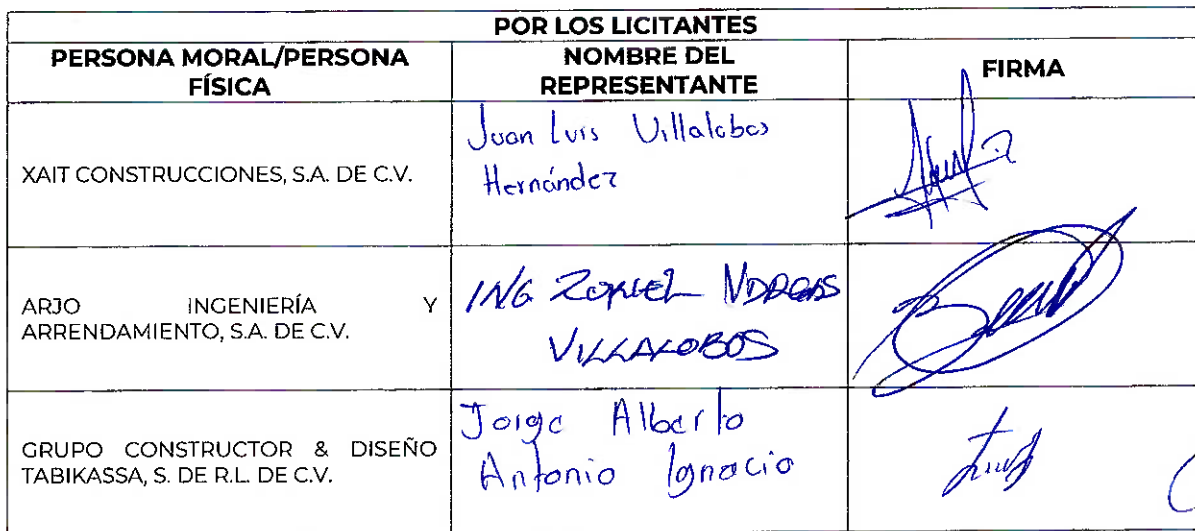 POR LOS LICITANTES
PERSONA MORAL/PERSONA FÍSICA
NOMBRE DEL REPRESENTANTE
FIRMA
XAIT CONSTRUCCIONES, S.A. DE C.V.
Juan Luis Villalobos
Hernández
ARJO INGENIERÍA Y
ARRENDAMIENTO, S.A. DE C.V.
ING
VILLALOBOS
GRUPO CONSTRUCTOR & DISEÑO
TABIKASSA, S. DE R.L. DE C.V.
Jorge Alberto
Antonio Ignacio